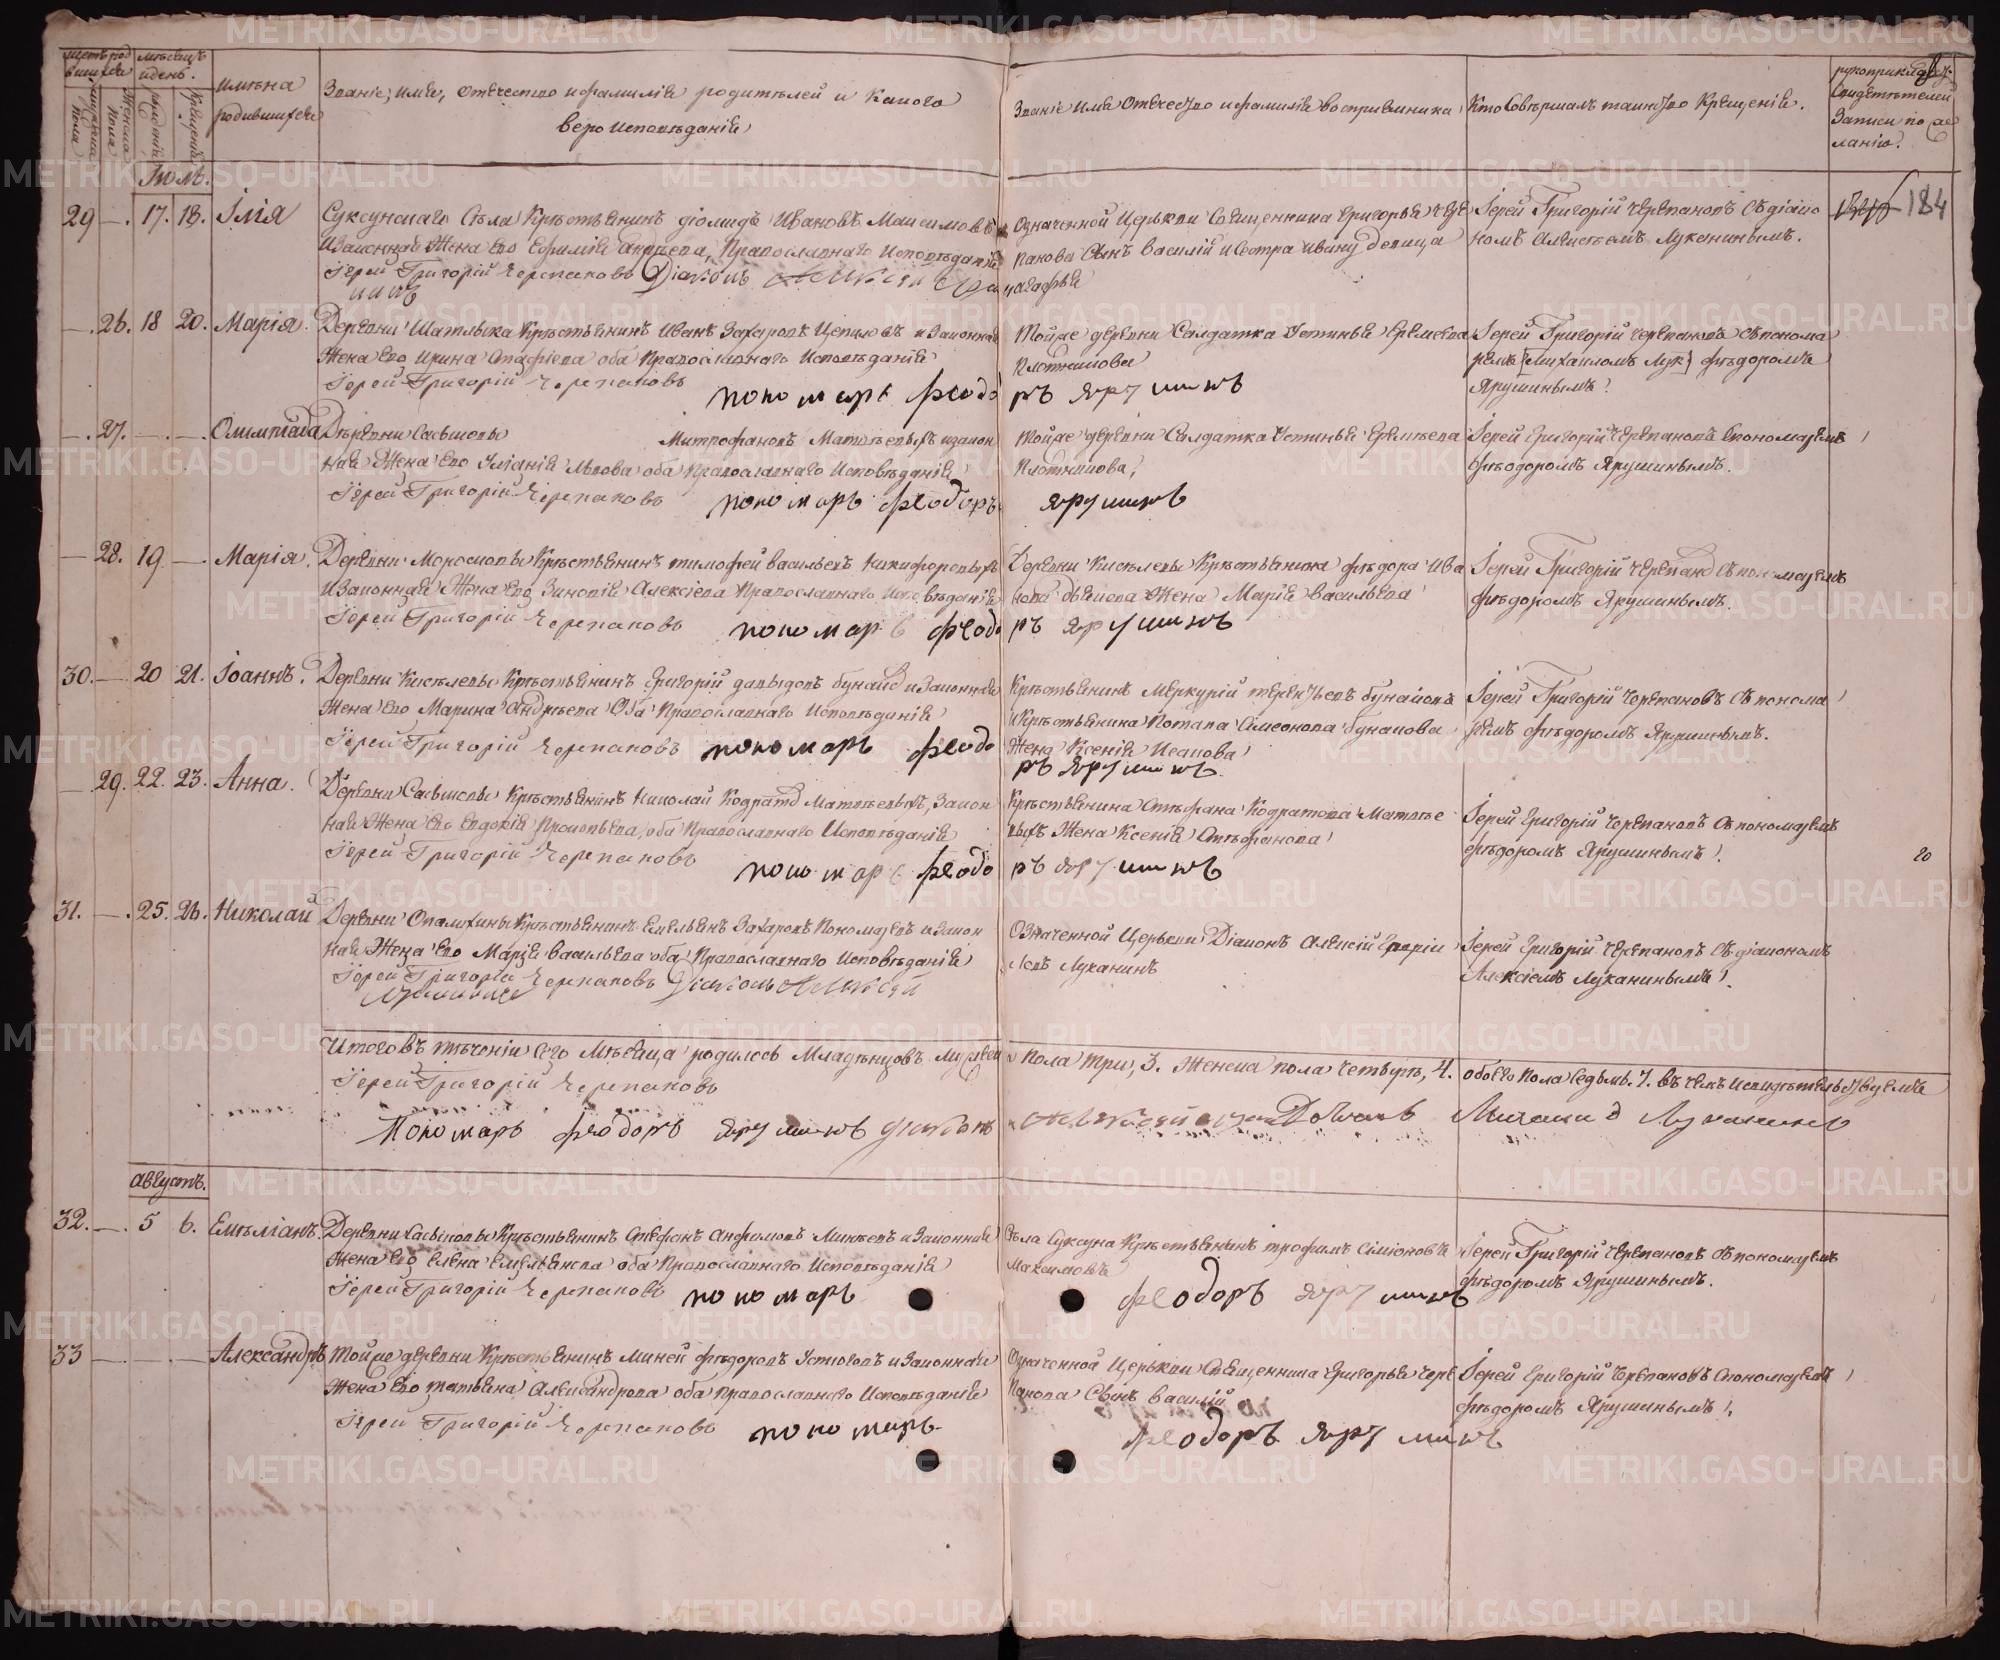 щетъ род
мѣсяцъ
и день.
имѣна
родившихся
Званіе, имя, отечество и фамилія родителей и какого
вероисповѣданія
Званіе имя отечество и фамилія воспріемника
Кто совершалъ таинство крещенія.
рукоприкладст.
свидѣтелей
записи по же
ланію.
мужеска пола
женска пола
рожденія
крещенія
Іюль.
29 — 17. 18. Ілія
Суксунскаго села крѣстьянинъ діомидъ Ивановъ Максимовъ
и законная жена его Ефимія Православнаго Исповѣданія
Іерей Григорій Черепановъ Діаконъ Алексѣй
Означенной церькви священника григорья чере
панова сынъ василій и сестра девица
агафья
Іерей Григорій черепановъ съ діако
номъ Алексѣемъ Луканинымъ.
184
— 26. 18 20. Марія.
Деревни Шатлыка крѣстьянинъ Иванъ Захаровъ и законная
жена его Ирина оба Православнаго Исповѣданія
Іерей Григорій Черепановъ
пономарь феодо
ръ ярушинъ
Тойже деревни Салдатка Устинья Еремеева
Плотникова
Іерей Григорій черепановъ съ понома
ремъ [Михаиломъ Лук] фѣдоромъ
Ярушинымъ.
— 27. — — Олимпіада
Деревни Савиновы Митрофановъ Матвѣевыхъ и закон
ная жена его Уліанія Львова оба Православнаго Исповѣданія
Іерей Григорій Черепановъ пономарь феодоръ
ярушинъ
Тойже деревни Салдатка Устинья Еремѣева
Плотникова
Іерей Григорій Черепановъ с пономаремъ
фѣодоромъ Ярушинымъ.
— 28. 19 — Марія.
Деревни крѣстьянинъ тимофей васильевъ Никифоровыхъ
и законная жена его Зиновія Алексіева Православнаго Исповѣданія
Іерей Григорій Черепановъ пономарь феодо
ръ ярушинъ
Деревни Киселевы крѣстьянина фѣдора Ива
нова жена Марія васильева
Іерей Григорій черепанов съ пономаремъ
фѣдоромъ Ярушинымъ.
30. — 20 21. Іоаннъ.
Деревни Киселевы крѣстьянинъ Григорій давыдовъ и законная
жена его Марина Андрѣева оба Православнаго Исповѣданія
Іерей Григорій Черепановъ пономарь феодо
ръ ярушинъ.
Крѣстьянинъ Меркурій терентьевъ бунаковъ
и крѣстьянина Потапа Симеонова бунакова
жена Ксенія Исакова
Іерей Григорій черепановъ съ понома
ремъ фѣдоромъ Ярушинымъ.
— 29. 22. 23. Анна.
Деревни Савиновы крѣстьянинъ Николай Кодратов Матвѣевыхъ, закон
ная жена его евдокія Прокопьева, оба Православнаго Исповѣданія
Іерей Григорій Черепановъ
пономарь феодо
ръ ярушинъ
Крѣстьянина Стефана Кодратова Матвѣе
выхъ жена Ксенія Стѣфанова
Іерей Григорій черепановъ съ пономаремъ
фѣдоромъ Ярушинымъ.
20
31. — 25. 26. Николай
Деревни Опалихины крѣстьянинъ Емельянъ Захаровъ Пономаревъ и закон
ная жена его Марія васильева оба Православнаго Исповѣданія
Іерей Григорій Черепановъ Діаконъ Алексѣй
Луканинъ
Означенной церькви Діаконъ Алексій Григорі
евъ Луканинъ
Іерей Григорій черепановъ съ діакономъ
Алексіемъ Луканинымъ.
Итого въ теченіи сего мѣсяца родилось младѣнцовъ мужеск
а пола три, 3. женска пола четырѣ, 4. обоего пола седьмъ. 7. въ чемъ и свидѣтельствуемъ
Іерей Григорій Черепановъ
Пономарь феодоръ ярушинъ діаконъ
Алексѣй Луканинъ
августъ.
32. — 5 6. Емѣліанъ.
Деревни Савиновы крѣстьянинъ Стефанъ Анфимовъ и законная
жена его елена емельянова оба Православнаго Исповѣданія
Іерей Григорій Черепановъ пономарь
феодоръ ярушинъ
Села Суксуна крѣстьянинъ трофимъ Симіоновъ
Максимовъ
Іерей Григорій черепановъ съ пономаремъ
фѣдоромъ Ярушинымъ.
33 — — — Александръ
Тойже деревни крѣстьянинъ Миней фѣдоровъ Устюговъ и законная
жена его татьяна Александрова оба православнаго Исповѣданія
Іерей Григорій Черепановъ пономарь
феодоръ ярушинъ
Означенной церькви священника Григорья чере
панова сынъ василій
Іерей Григорій черепановъ с пономаремъ
фѣдоромъ Ярушинымъ.
METRIKI.GASO-URAL.RU